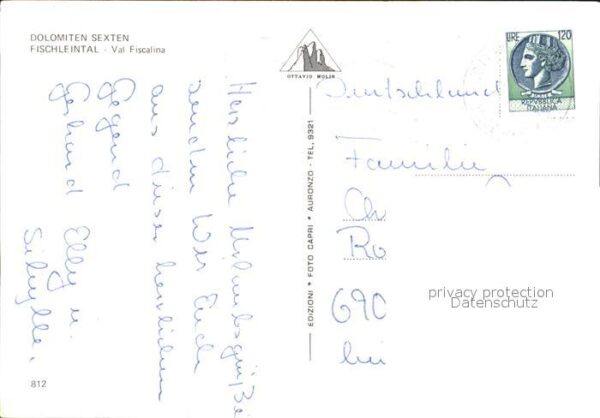 DOLOMITEN SEXTEN
FISCHLEINTAL - Val Fiscalina
Herzliche Urlaubsgrüße
senden Wir Euch
aus dieser herrlichen
Gegend
Gerhard Elly u.
Sibylle.
812
OTTAVIO MOLIN
EDIZIONI * FOTO CAPRI * AURONZO - TEL. 9321
LIRE 120
REPVBBLICA
ITALIANA
Deutschland
Familie
Ch
Ro
690
privacy protection
Datenschutz